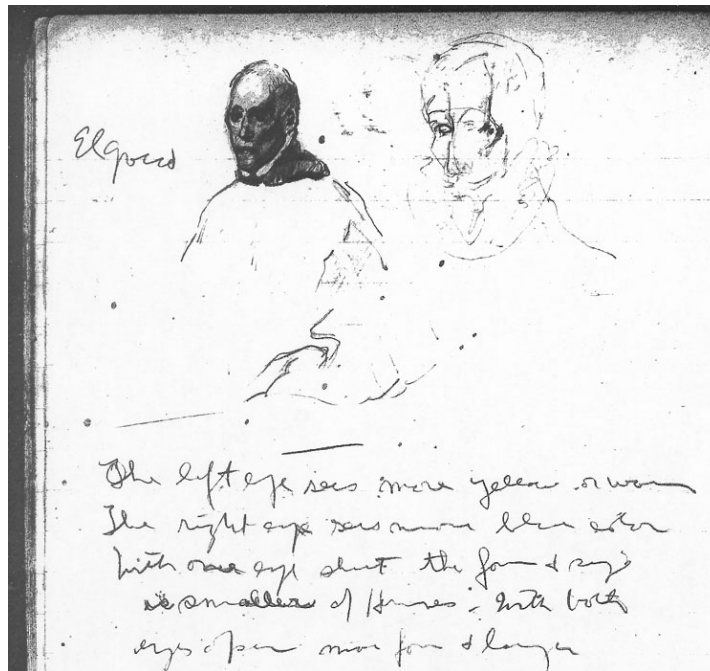 El Greco
The left eye sees more yellow or warm
The right eye sees more blue color
With one eye shut the form & size
is smaller of : With both
eyes open more form & larger